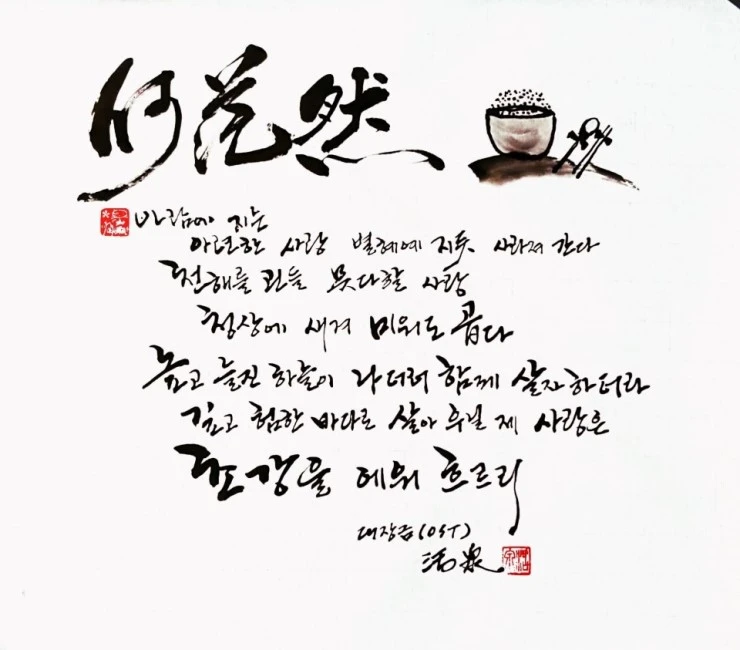 何茫然
바람에 지는
아련한 사랑 별헤예 지듯 사라져 간다
천해를 괸들 못다할 사랑
청상에 새겨 미워도 곱다
높고 늘진 하늘이 나더러 함께 살자 하더라
깊고 험한 바다로 살아 우닐 제 사랑은
초강을 에워 흐르리
대장금(OST)
活泉